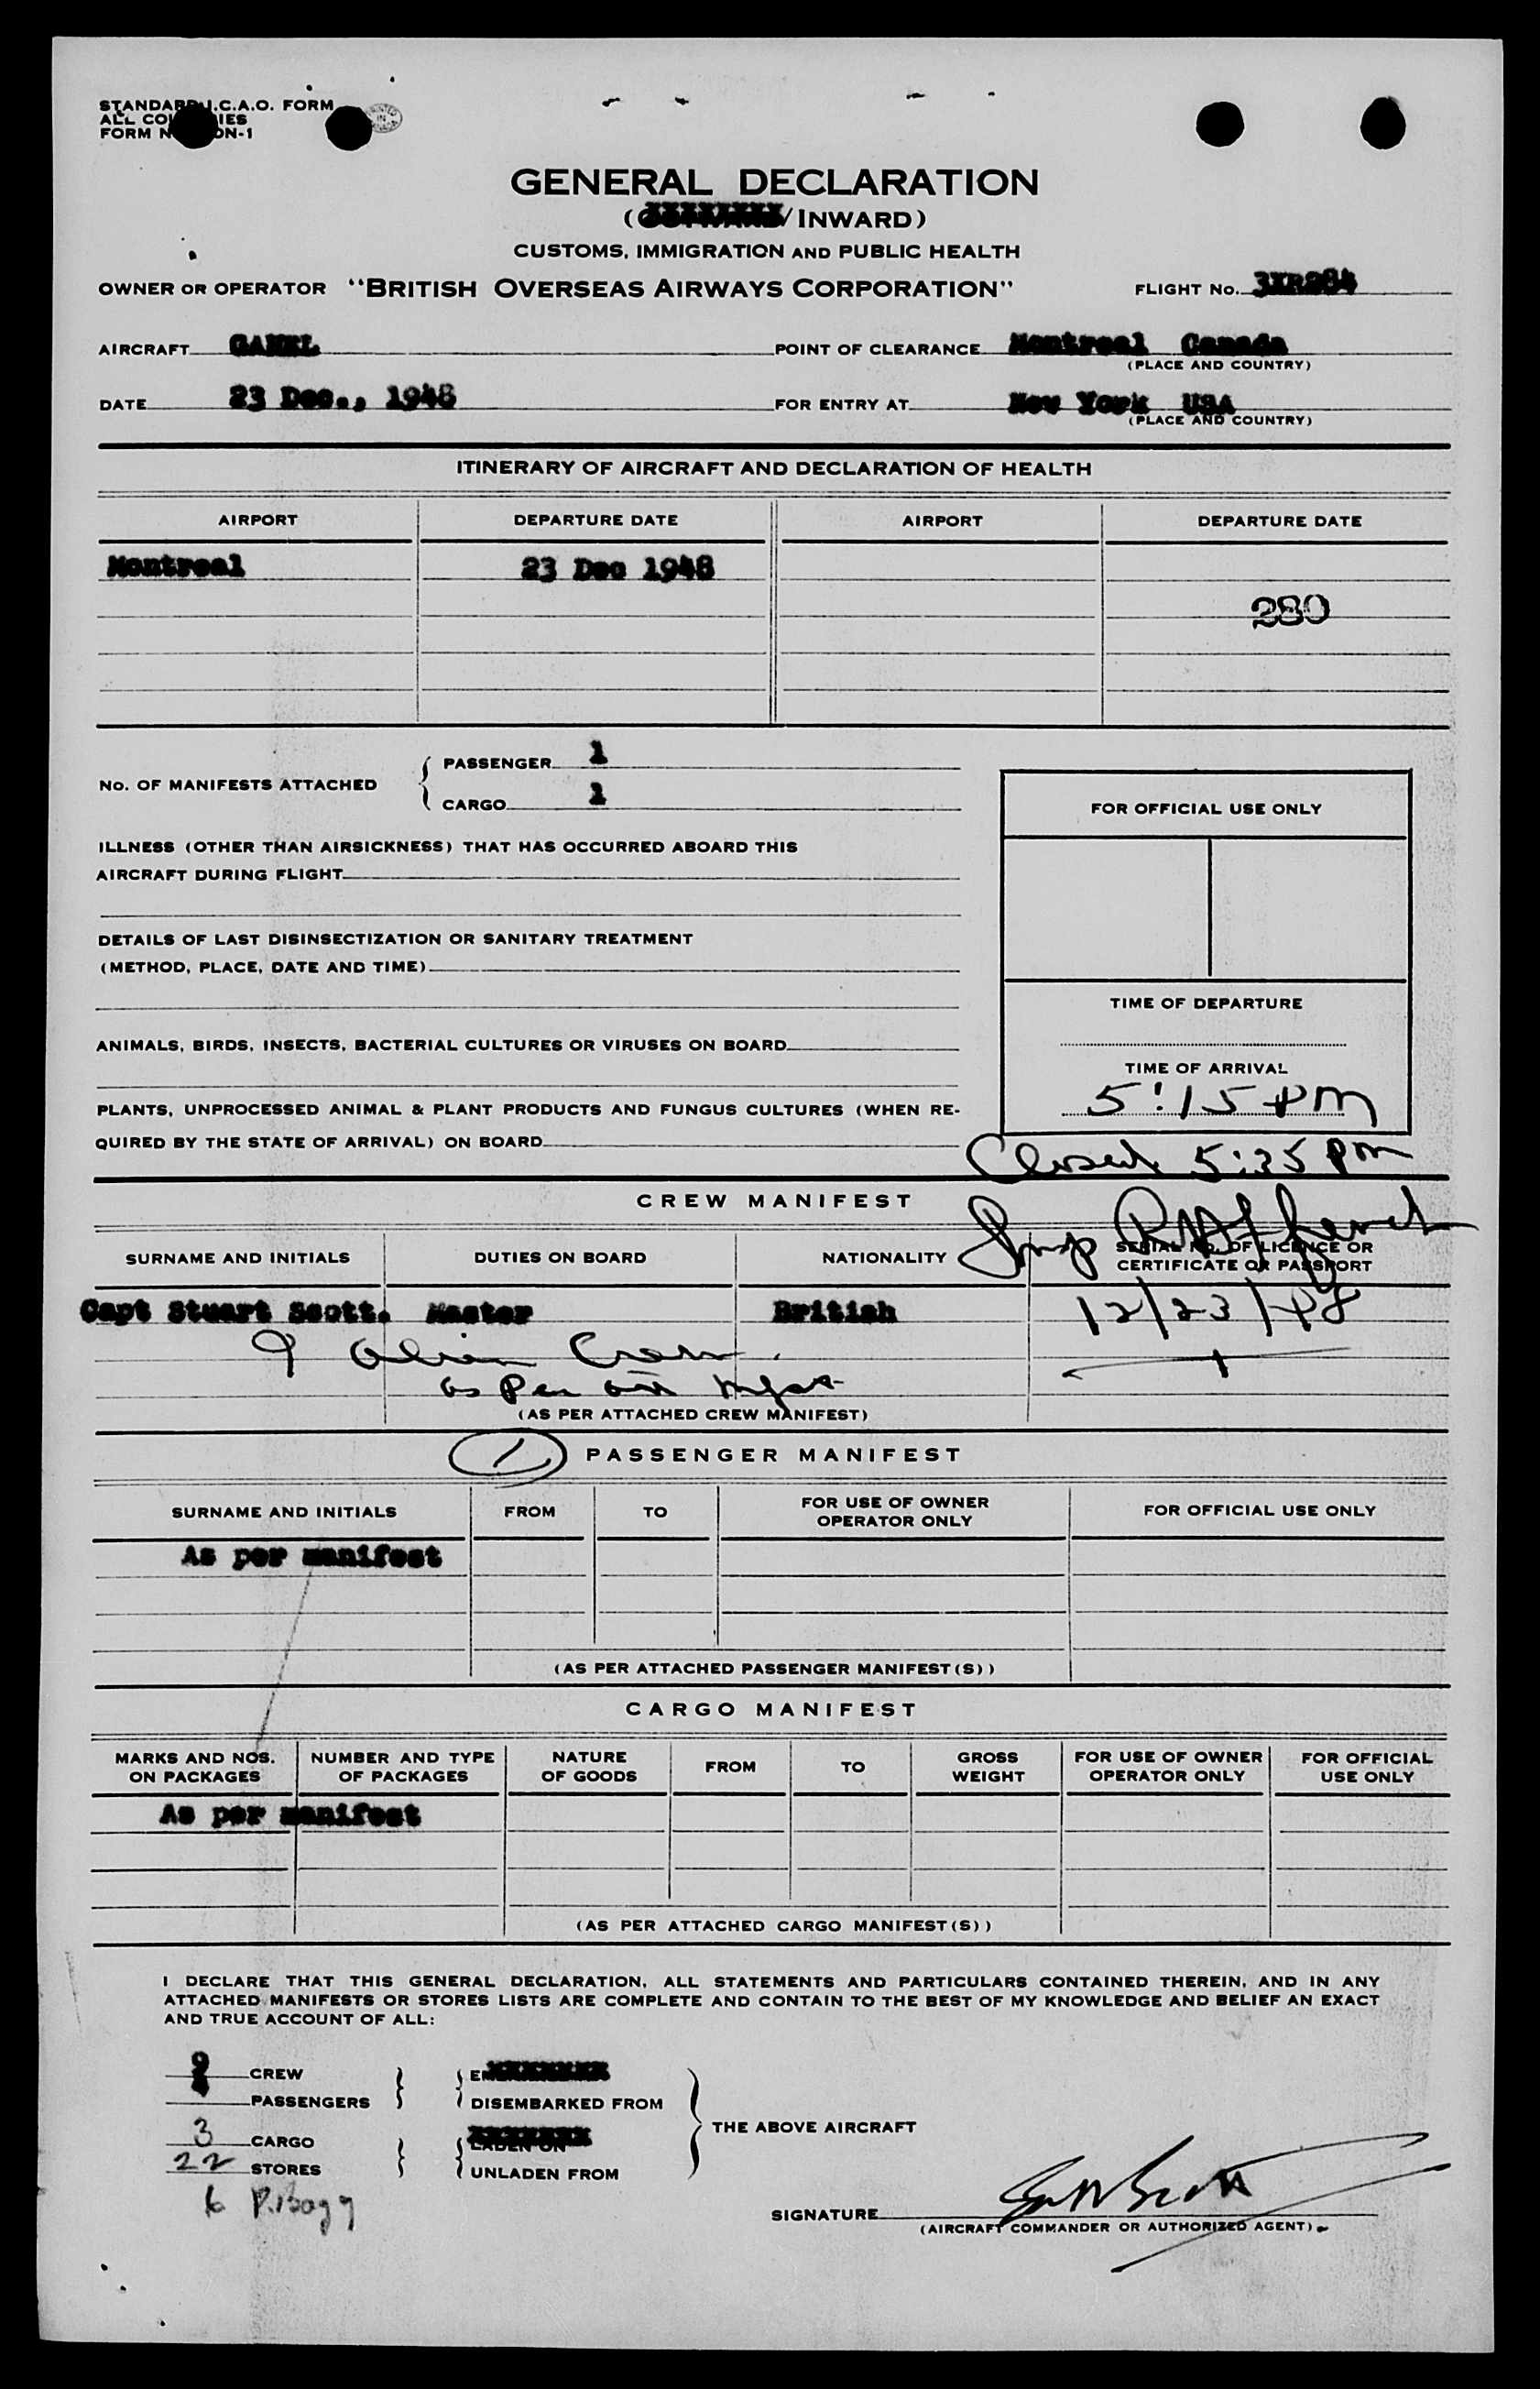 STANDARD I.C.A.O. FORM
ALL
FORM
GENERAL DECLARATION
(/INWARD)
CUSTOMS, IMMIGRATION AND PUBLIC HEALTH
OWNER OR OPERATOR "BRITISH OVERSEAS AIRWAYS CORPORATION" FLIGHT No. 3XR284
AIRCRAFT POINT OF CLEARANCE Montreal Canada
(PLACE AND COUNTRY)
DATE 23 Dec., 1948 FOR ENTRY AT New York USA
(PLACE AND COUNTRY)
ITINERARY OF AIRCRAFT AND DECLARATION OF HEALTH
AIRPORT DEPARTURE DATE AIRPORT DEPARTURE DATE
Montreal 23 Dec 1948
280
No. OF MANIFESTS ATTACHED
PASSENGER 1
CARGO 1
FOR OFFICIAL USE ONLY
ILLNESS (OTHER THAN AIRSICKNESS) THAT HAS OCCURRED ABOARD THIS
AIRCRAFT DURING FLIGHT
DETAILS OF LAST DISINSECTIZATION OR SANITARY TREATMENT
(METHOD, PLACE, DATE AND TIME)
TIME OF DEPARTURE
ANIMALS, BIRDS, INSECTS, BACTERIAL CULTURES OR VIRUSES ON BOARD
TIME OF ARRIVAL
5:15 PM
PLANTS, UNPROCESSED ANIMAL & PLANT PRODUCTS AND FUNGUS CULTURES (WHEN RE-
QUIRED BY THE STATE OF ARRIVAL) ON BOARD
Closed 5:35 pm
CREW MANIFEST
SURNAME AND INITIALS DUTIES ON BOARD NATIONALITY SERIAL NO. OF LICENCE OR
CERTIFICATE OR PASSPORT
Capt Stuart Scott. Master British 12/23/48
9 Alien Crew
as per att mfst
(AS PER ATTACHED CREW MANIFEST)
1 PASSENGER MANIFEST
SURNAME AND INITIALS FROM TO FOR USE OF OWNER
OPERATOR ONLY FOR OFFICIAL USE ONLY
As per manifest
(AS PER ATTACHED PASSENGER MANIFEST(S))
CARGO MANIFEST
MARKS AND NOS.
ON PACKAGES NUMBER AND TYPE
OF PACKAGES NATURE
OF GOODS FROM TO GROSS
WEIGHT FOR USE OF OWNER
OPERATOR ONLY FOR OFFICIAL
USE ONLY
As per manifest
(AS PER ATTACHED CARGO MANIFEST(S))
I DECLARE THAT THIS GENERAL DECLARATION, ALL STATEMENTS AND PARTICULARS CONTAINED THEREIN, AND IN ANY
ATTACHED MANIFESTS OR STORES LISTS ARE COMPLETE AND CONTAIN TO THE BEST OF MY KNOWLEDGE AND BELIEF AN EXACT
AND TRUE ACCOUNT OF ALL:
9 CREW
PASSENGERS DISEMBARKED FROM
THE ABOVE AIRCRAFT
3 CARGO LADEN ON
22 STORES UNLADEN FROM
6 P.Bagg
SIGNATURE
(AIRCRAFT COMMANDER OR AUTHORIZED AGENT)